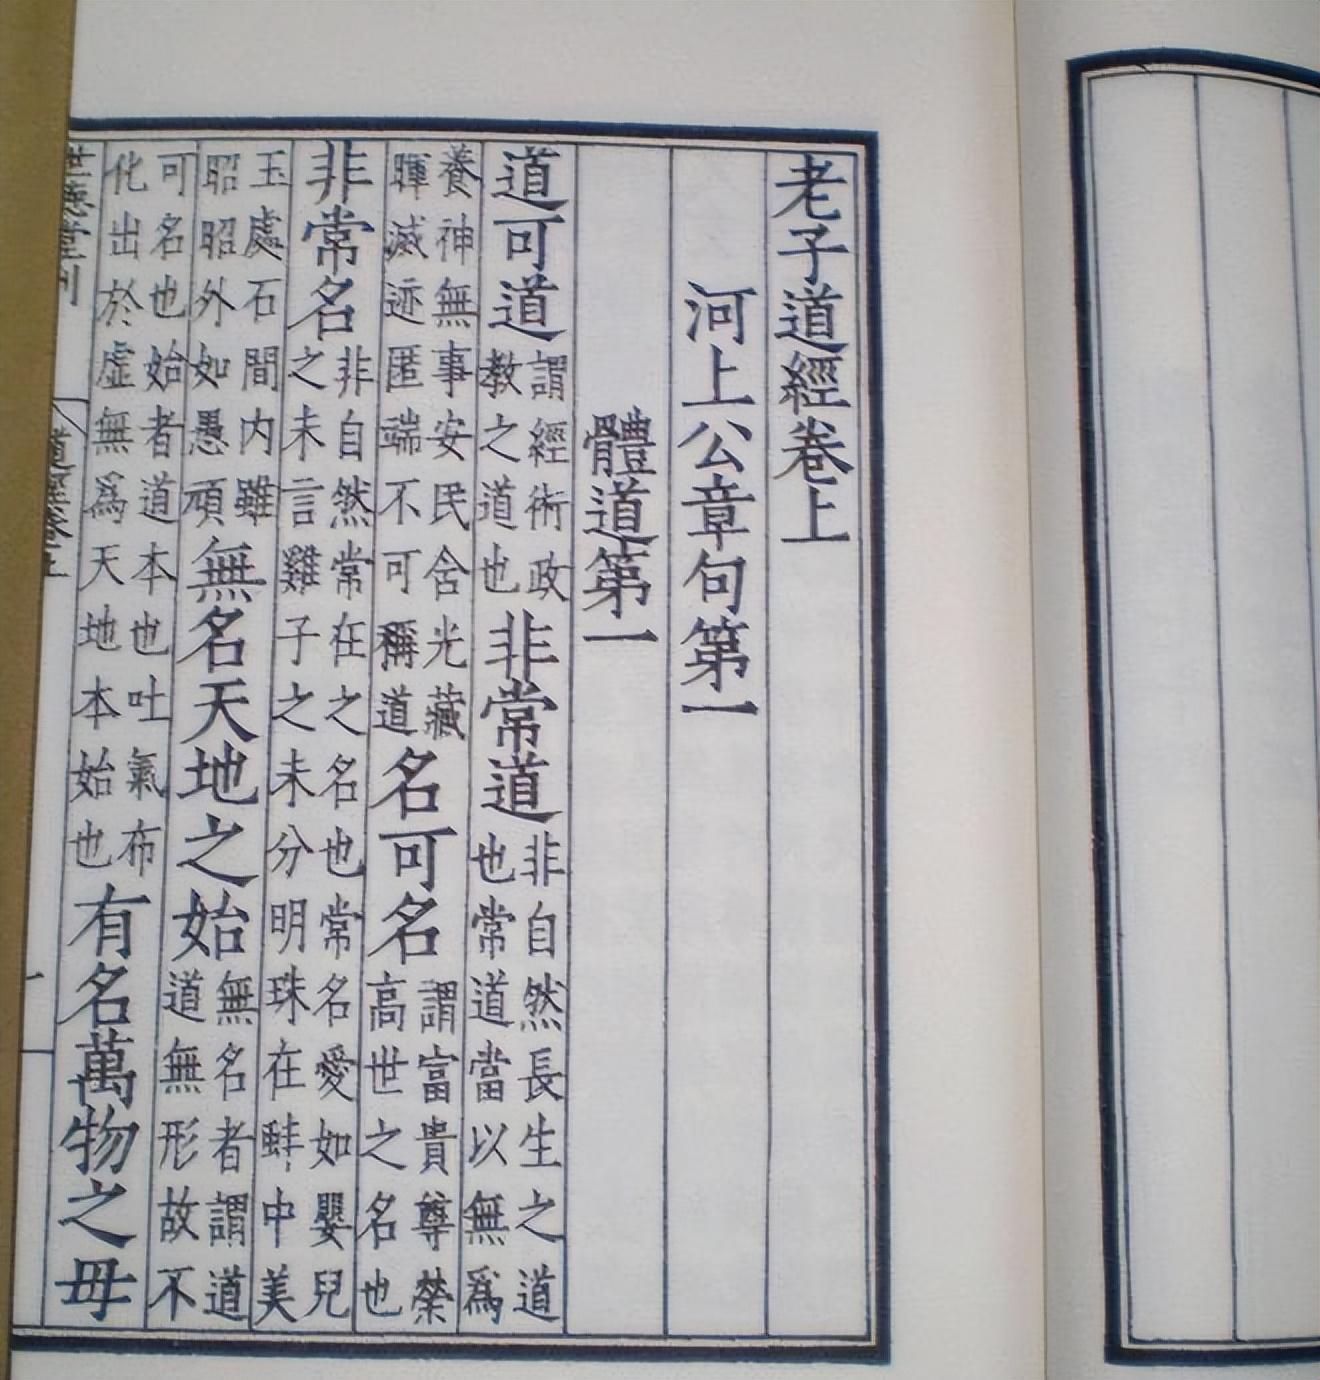 老子道經卷上
河上公章句第一
體道第一
道可道謂經術政教之道也非常道非自然長生之道也常道當以無爲
養神無事安民含光藏暉滅迹匿端不可稱道名可名謂富貴尊榮高世之名也
非常名非自然常在之名也常名愛如嬰兒之未言雞子之未分明珠在蚌中美
玉處石間内雖昭昭外如愚頑無名天地之始無名者謂道道無形故不
可名也始者道本也吐氣布化出於虛無爲天地本始也有名萬物之母
世德堂刊
道經卷上
一